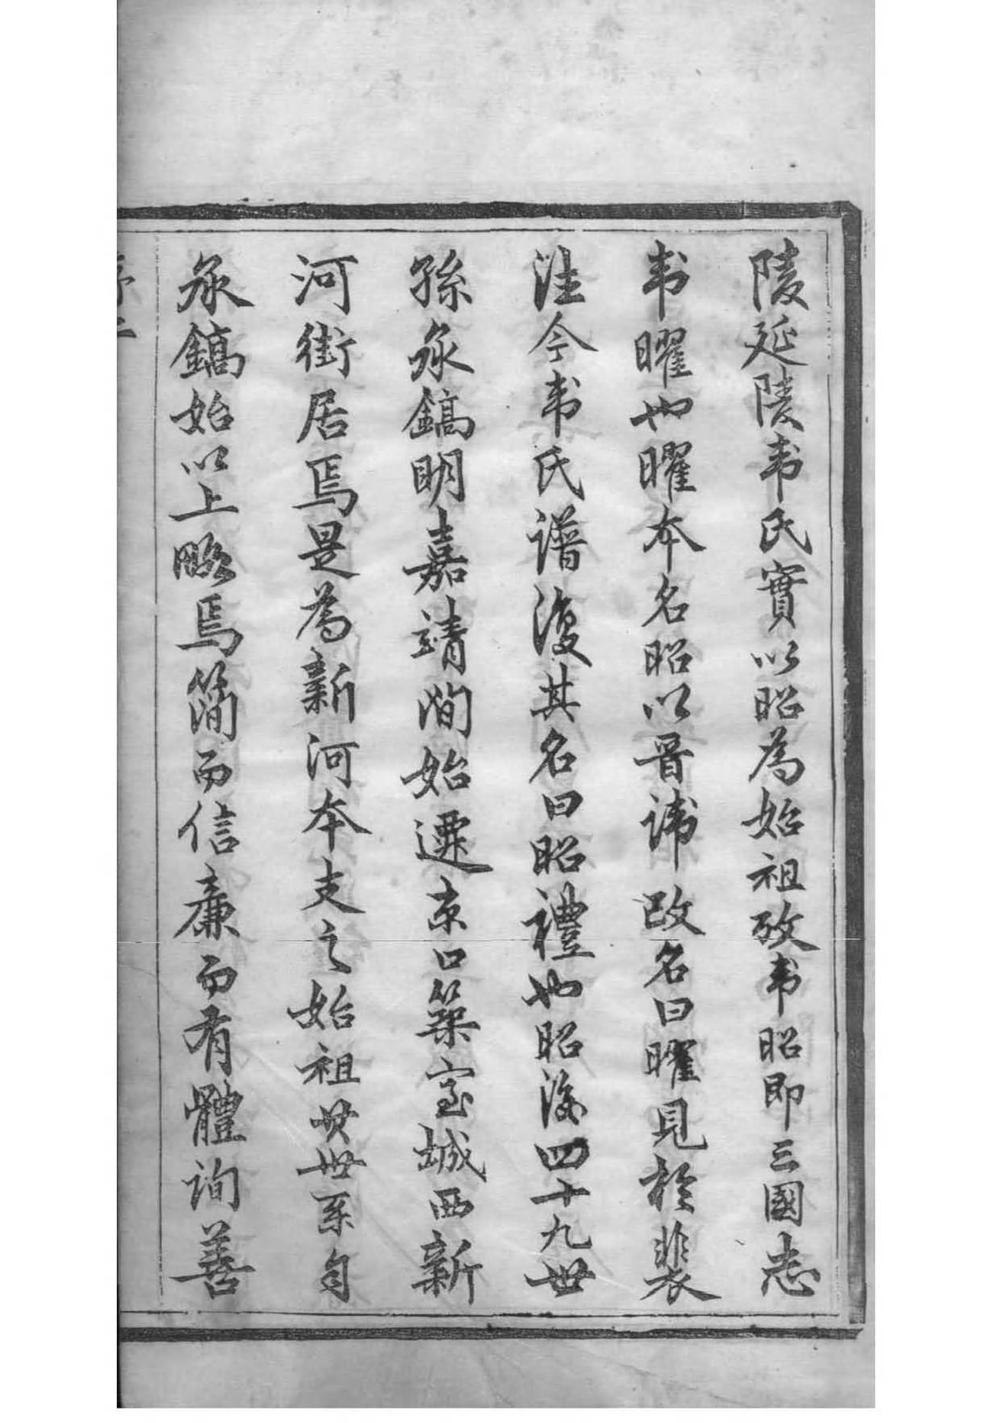 陵延陵韦氏實以昭為始祖攷韦昭即三國志
韦曜也曜本名昭以晋諱改名曰曜見於裴
注今韦氏譜復其名曰昭禮也昭後四十九世
孫永鎬明嘉靖間始遷京口築室城西新
河街居焉是為新河本支之始祖其世系自
永鎬始以上略焉簡而信廉而有體洵善
序二